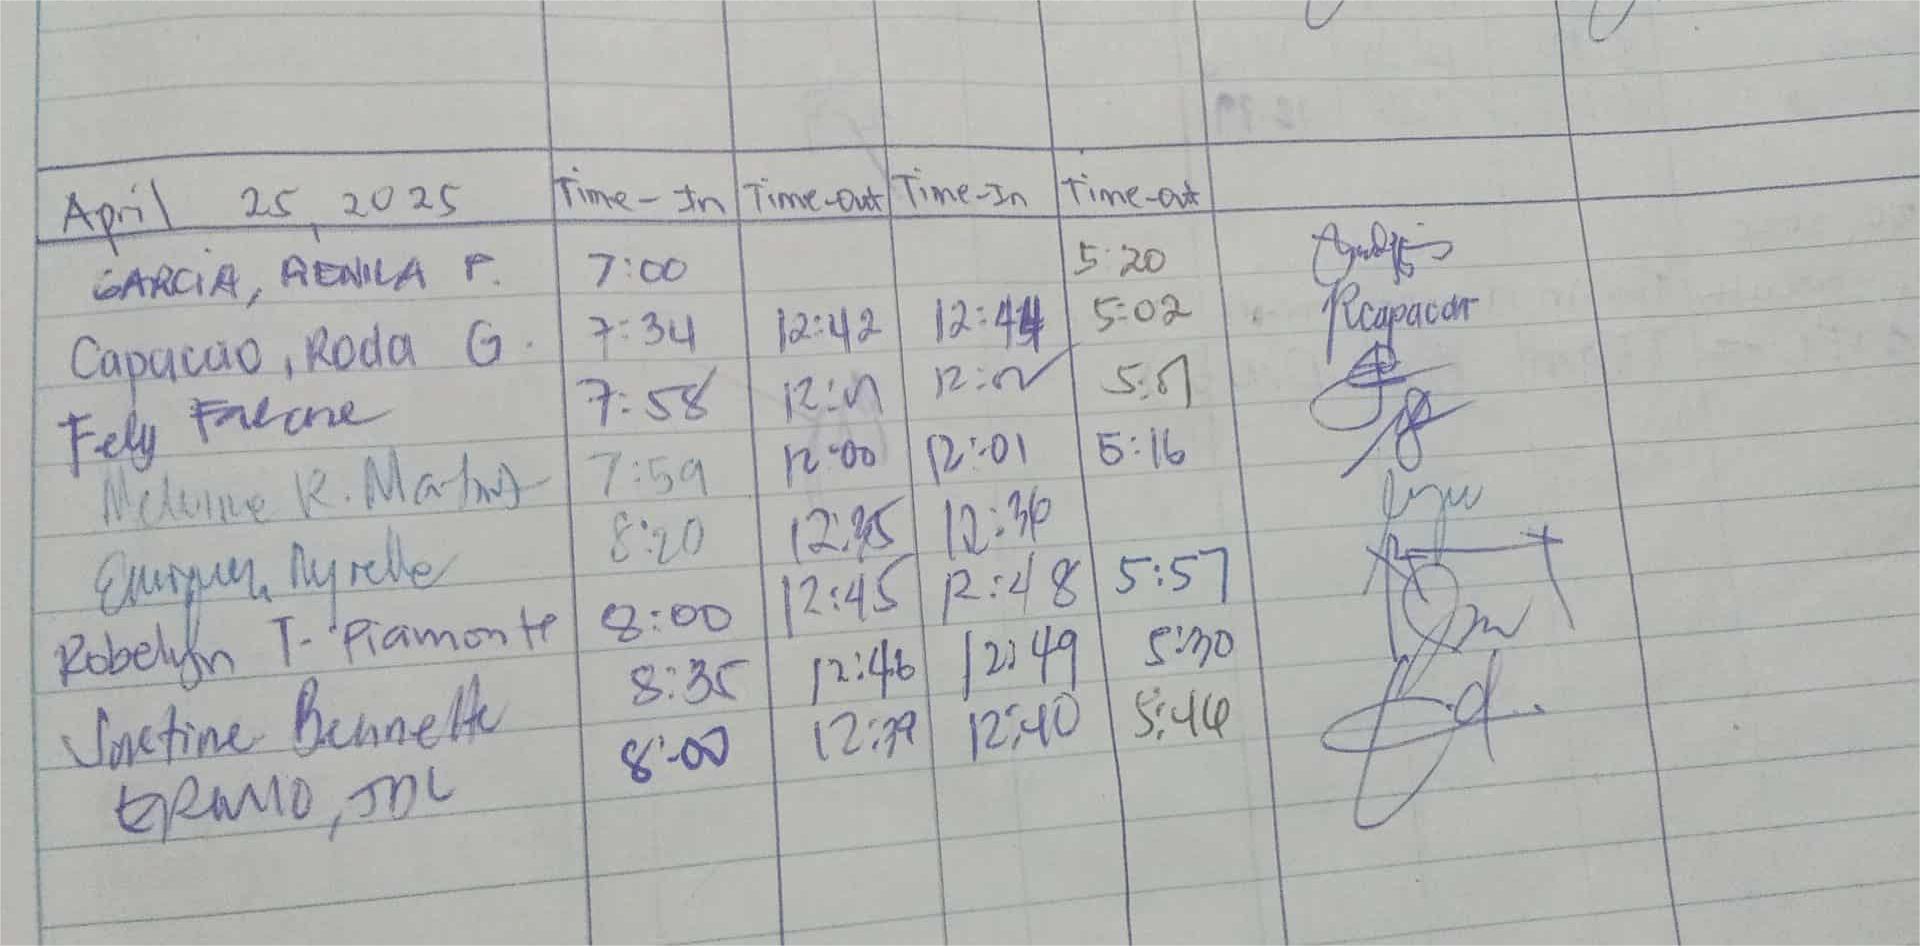 April 25, 2025 Time-In Time-out Time-In Time-out
GARCIA, RENILA P. 7:00 5:20
Capacao, Roda G. 7:34 12:42 12:44 5:02 Rcapacao
Fely 7:58 5:01
K. 7:59 12:00 12:01 5:16
Myrelle 8:20 12:35 12:36
Robelyn T. Piamonte 8:00 12:45 12:48 5:57
Bennette 8:35 12:46 12:49 5:30
JDL 8:00 12:39 12:40 5:46